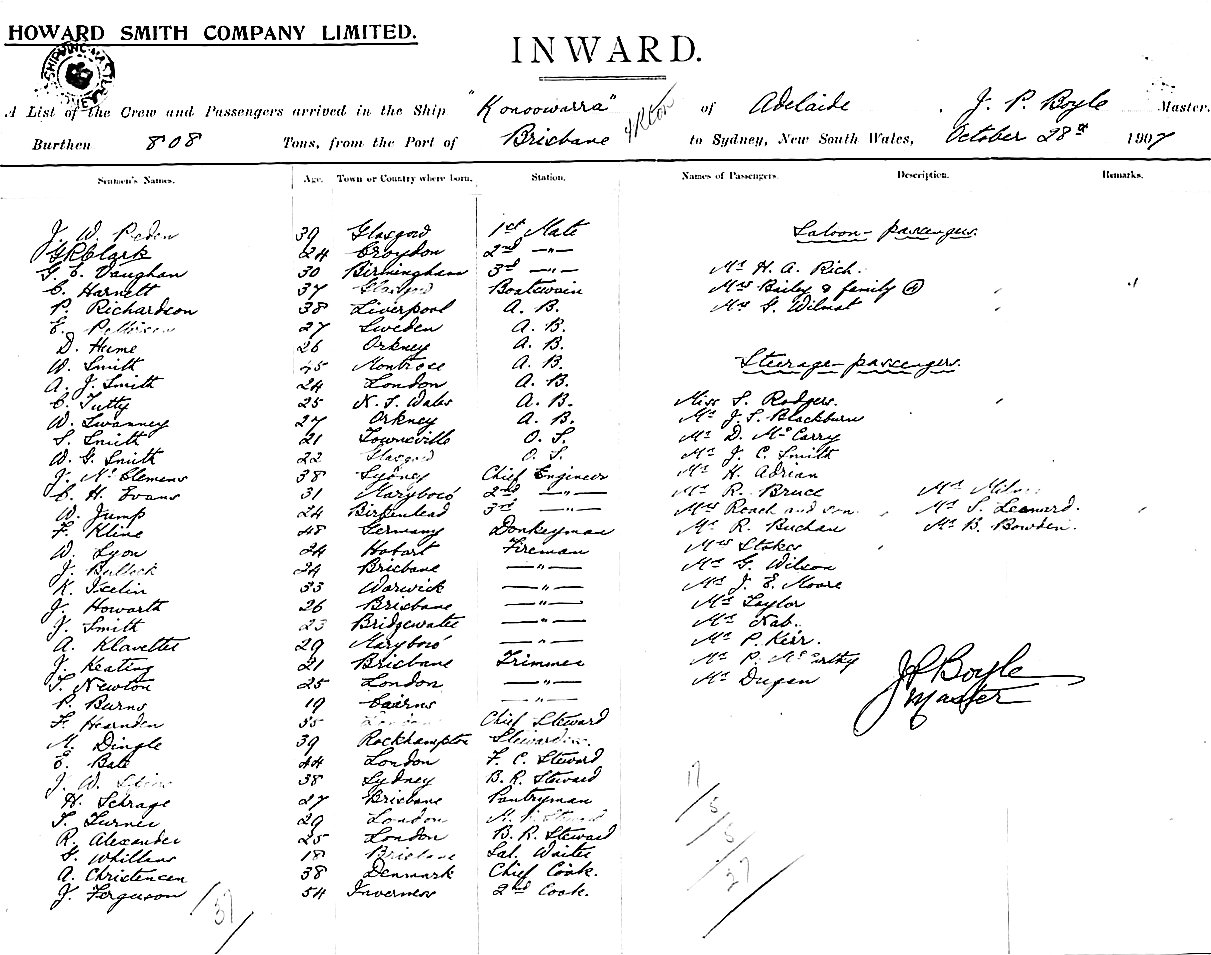 HOWARD SMITH COMPANY LIMITED.
INWARD.
A List of the Crew and Passengers arrived in the Ship "Konoowarra" of Adelaide, J. P. Boyle Master.
Burthen 808 Tons, from the Port of Brisbane to Sydney, New South Wales, October 28th 1907
Seamen's Names. Age. Town or Country where born. Station. Names of Passengers. Description. Remarks.
J. W. Peden 39 Glasgow 1st Mate
G R Clark 24 Croydon 2nd —"—
G. E. Vaughan 30 Birmingham 3rd —"—
C. Harnett 37 Glasgow Boatswain
P. Richardson 38 Liverpool A. B.
E. 27 Sweden A. B.
D. Hume 26 Orkney A. B.
W. Smith 45 Montrose A. B.
A. J. Smith 24 London A. B.
C. Tutty 25 N. S. Wales A. B.
W. Swanney 27 Orkney A. B.
S. Smith 21 Townsville O. S.
W. G. Smith 22 Glasgow O. S.
J. McClemens 38 Sydney Chief Engineer
C. H. Evans 31 Maryboro' 2nd —"—
W. Jump 24 Birkenhead 3rd —"—
F. Kline 48 Germany Donkeyman
W. Lyon 24 Hobart Fireman
J. Bullock 24 Brisbane —"—
K. Iselin 33 Warwick —"—
J. Howarth 26 Brisbane —"—
J. Smith 23 Bridgewater —"—
A. Klavetter 29 Maryboro' —"—
J. Keating 21 Brisbane Trimmer
T. Newton 25 London —"—
P. Burns 19 Cairns —"—
F. Hearnden 55 London Chief Steward
M. Dingle 39 Rockhampton Stewardess
E. Bate 44 London F. C. Steward
J. W. 38 Sydney B. R. Steward
H. Schrage 27 Brisbane Pantryman
T. Turner 29 London Steward
R. Alexander 25 London B. R. Steward
S. Whillans 18 Brisbane Sal. Waiter
A. Christensen 38 Denmark Chief Cook.
J. Ferguson 54 Inverness 2nd Cook.
37
Saloon-passengers.
Mr H. A. Rich.
Mrs Bailey & family (4)
Mr G. Wilmot
Steerage-passengers.
Miss S. Rodgers.
Mr J. S. Blackburn
Mr D. McCarry
Mr J. C. Smith
Mr H. Adrian
Mr R. Bruce
Mrs Roach and son.
Mr S. Leonard.
Mr R. Buchan
Mr B. Bowden.
Mrs Stokes
Mr G. Wilson
Mr J. E. Moore
Mr Taylor
Mr P. Kerr.
Mr Dugan
J P Boyle
Master
17/5/5/27